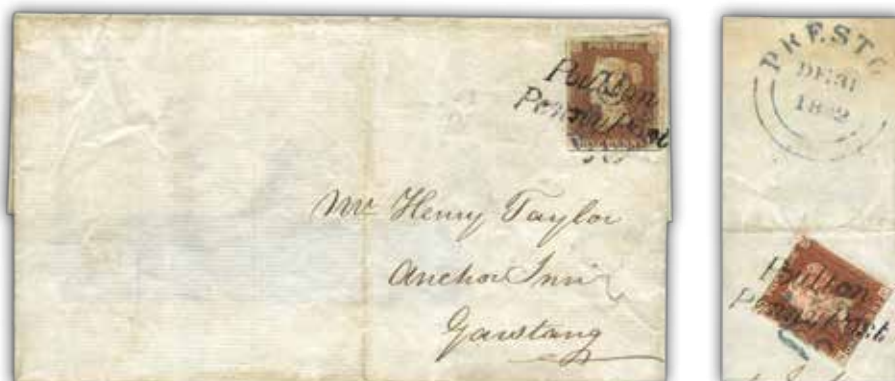 Poulton
Penny Post
Mr Henry Taylor
Anchor Inn
Garstang
PRESTO
DE 31
1842
Poulton
Penny Post